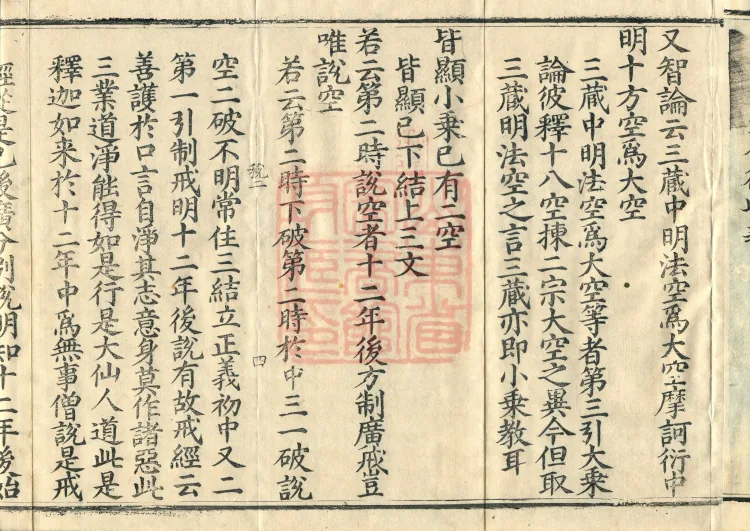 又智論云三藏中明法空爲大空摩訶衍中
明十方空爲大空
三藏中明法空爲大空等者第三引大乗
論彼釋十八空揀二宗大空之異今但取
三藏明法空之言三藏亦即小乗教耳
皆顯小乗已有二空
皆顯已下結上三文
若云第二時說空者十二年後方制廣戒豈
唯說空
若云第二時下破第二時於中三一破說
空二破不明常住三結立正義初中又二
第一引制戒明十二年後說有故戒經云
善護於口言自淨其志意身莫作諸惡此
三業道淨能得如是行是大仙人道此是
釋迦如来於十二年中爲無事僧說是戒
經從是已後廣分別說明知十二年後始
四